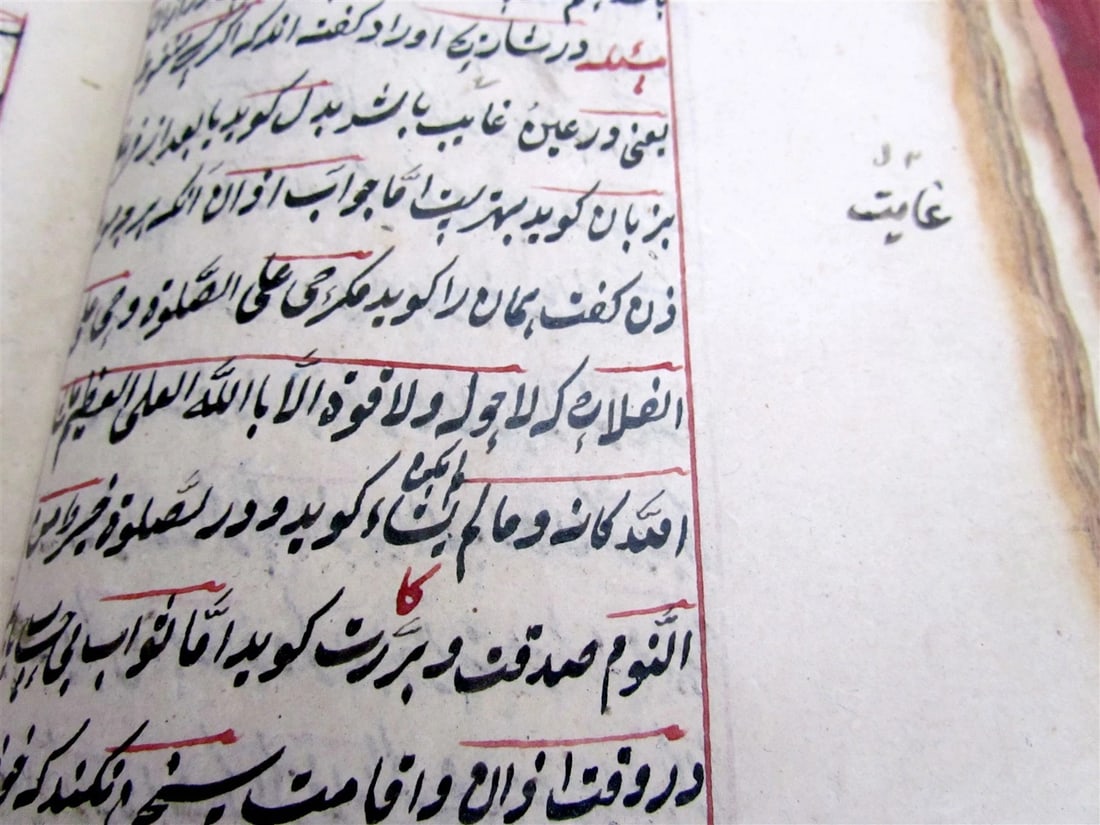 مسئله در شارق اوراد گفته اند که اگر
یعنی در عین غایب باشد بدل گوید یا بعد از
بزبان گوید بهتر است اما جواب اذان آنکه هر چه
ذن گفت همان را گوید مگر حی علی الصلوة و حی علی
الفلاح که لا حول ولا قوة الا بالله العلی العظیم
الله کانه و مالم یشاء گوید و در الصلوة خیر من
یکن
النوم صدقت و بررت گوید اما ثواب بی حساب
کا
در وقت اذان و اقامت سخن نکند که
غایت